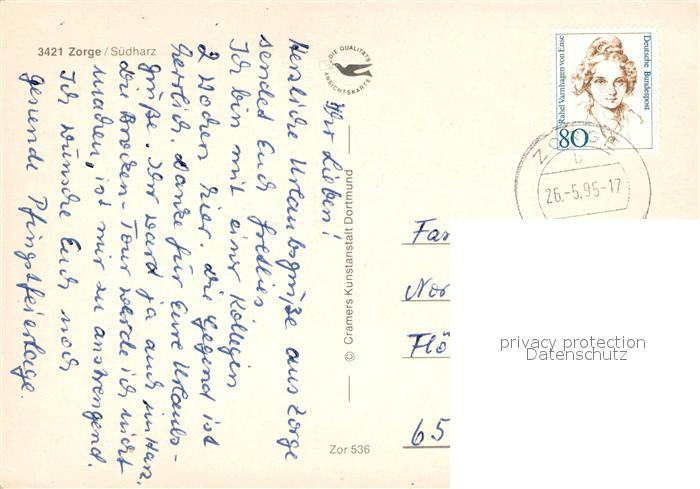 3421 Zorge / Südharz
Ihr Lieben!
Herzliche Urlaubsgrüße aus Zorge
sendet Euch
Ich bin mit einer Kollegin
2 Wochen hier. Die Gegend ist
herrlich. Danke für Eure Urlaubs-
grüße. Ihr ward ja auch im Harz,
die Brocken-Tour werde ich nicht
machen, ist mir zu anstrengend.
Ich wünsche Euch noch
gesunde Pfingstfeiertage.
DIE QUALITÄTS
ANSICHTSKARTE
© Cramers Kunstanstalt Dortmund
Zor 536
Rahel Varnhagen von Ense
Deutsche Bundespost
80
ZORGE
b
26.-5.95-17
Fam
Nor
Flö
65
privacy protection
Datenschutz